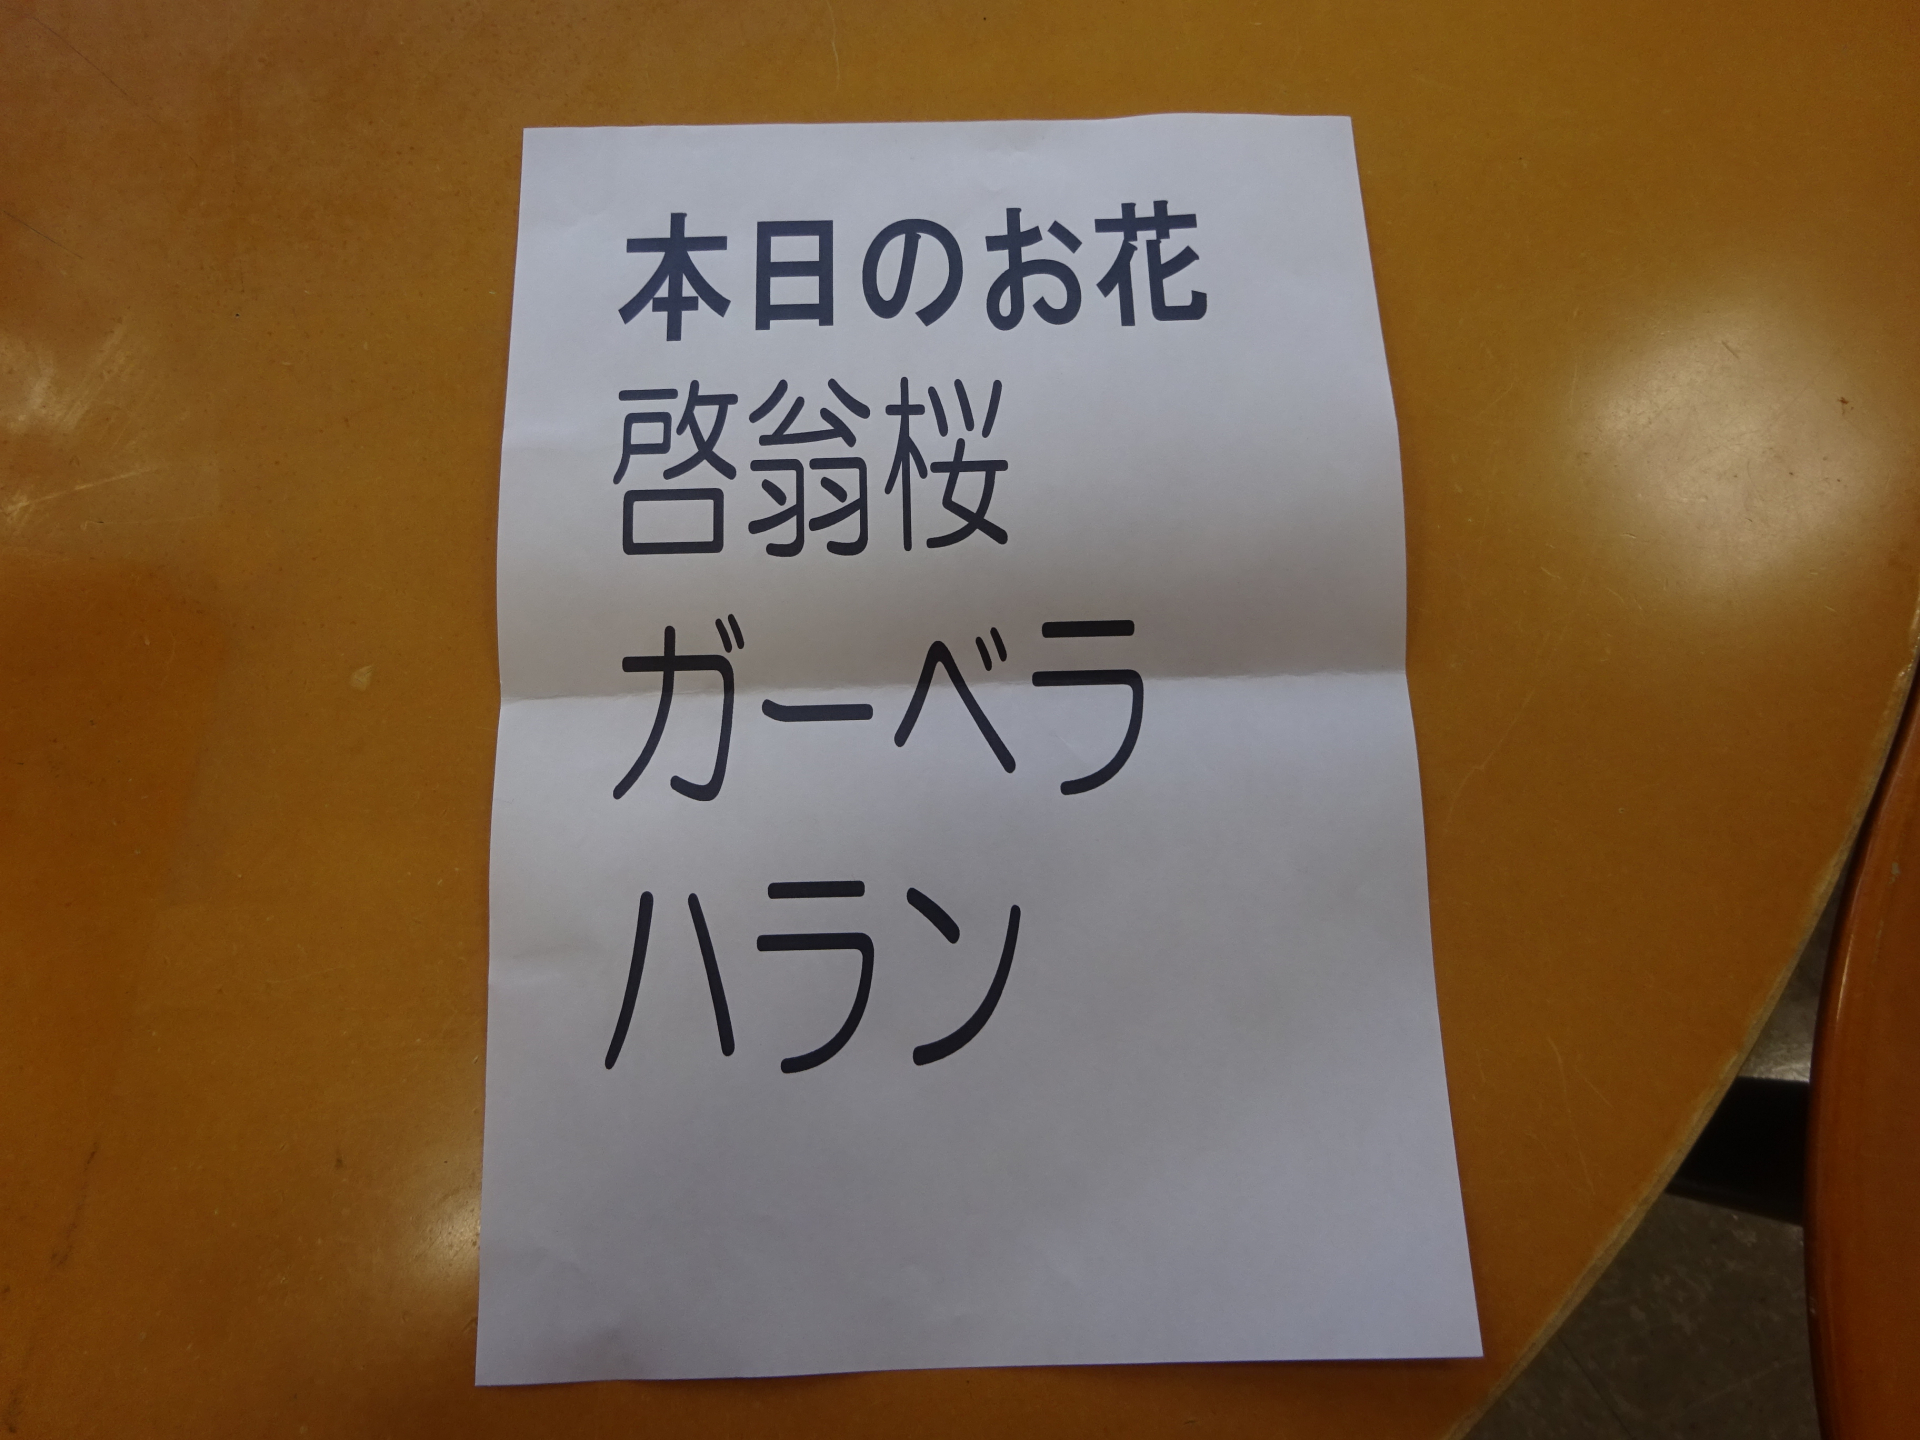 本日のお花
啓翁桜
ガーベラ
ハラン